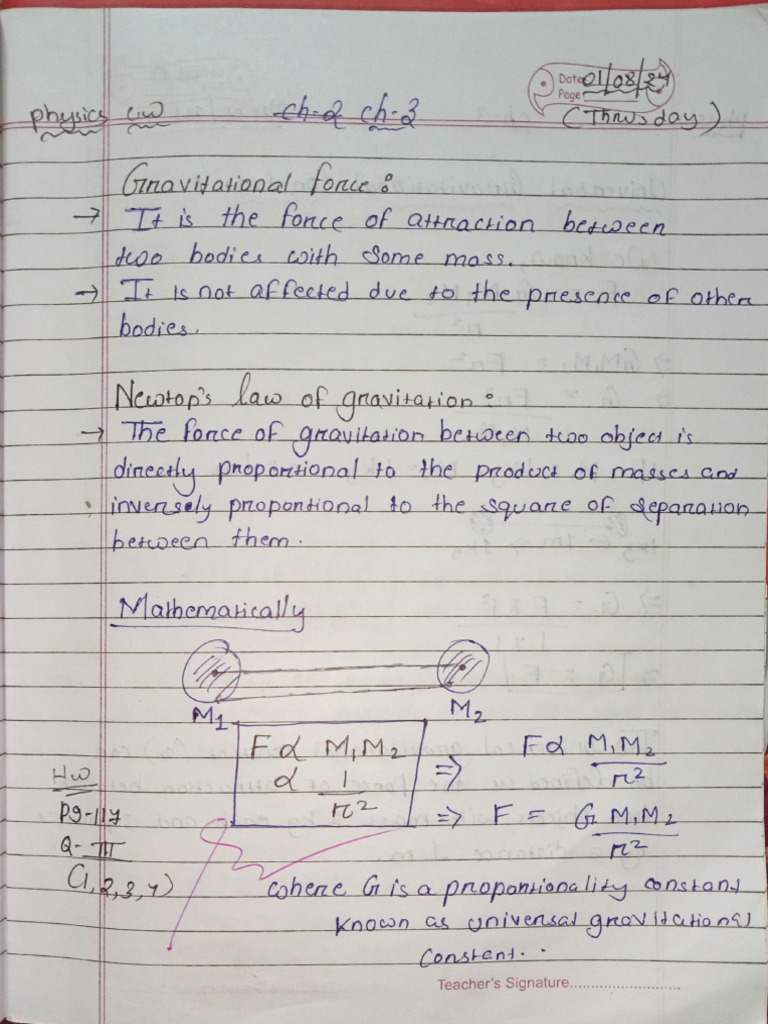 Date 01/08/24
Page
physics cw ch-2 ch-3 (Thrusday)
Gravitational force:
→ It is the force of attraction between
two bodies with some mass.
→ It is not affected due to the presence of other
bodies.
Newton's law of gravitation:
→ The force of gravitation between two object is
directly proportional to the product of masses and
inversely proportional to the square of separation
between them.
Mathematically
M1 M2
F ∝ M1M2
∝ 1/r²
⇒ F ∝ M1M2/r²
⇒ F = G M1M2/r²
HW
Pg-117
Q-III
(1,2,3,4)
where G is a proportionality constant
known as universal gravitational
constant..
Teacher's Signature..........................